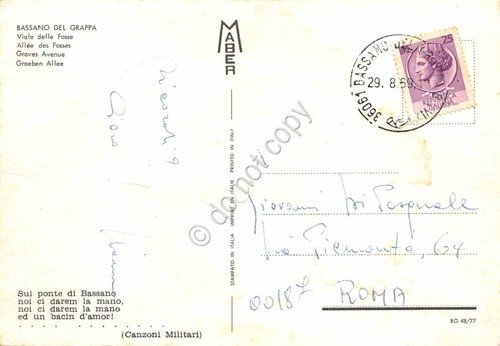 BASSANO DEL GRAPPA
Viale delle Fosse
Allée des Fosses
Graves Avenue
Graeben Allee
Ricordi
Sul ponte di Bassano
noi ci darem la mano,
noi ci darem la mano
ed un bacin d'amor!
. . . . . . . . . . . . . . .
(Canzoni Militari)
MABER
STAMPATO IN ITALIA IMPRIMÉ EN ITALIE PRINTED IN ITALY
do not copy
36061 BASSANO
29. 8. 69
25
Giovanni Di Pasquale
Via Piemonte, 64
00187 ROMA
BG 48/77